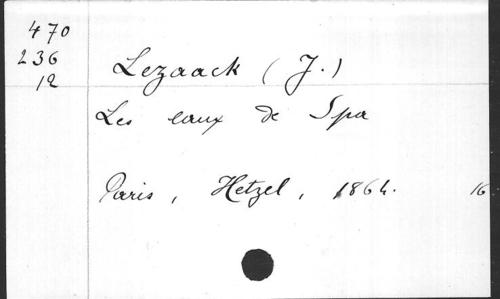 470
236
12
Lezaack (J.)
Les eaux de Spa
Paris, Hetzel, 1864. 16